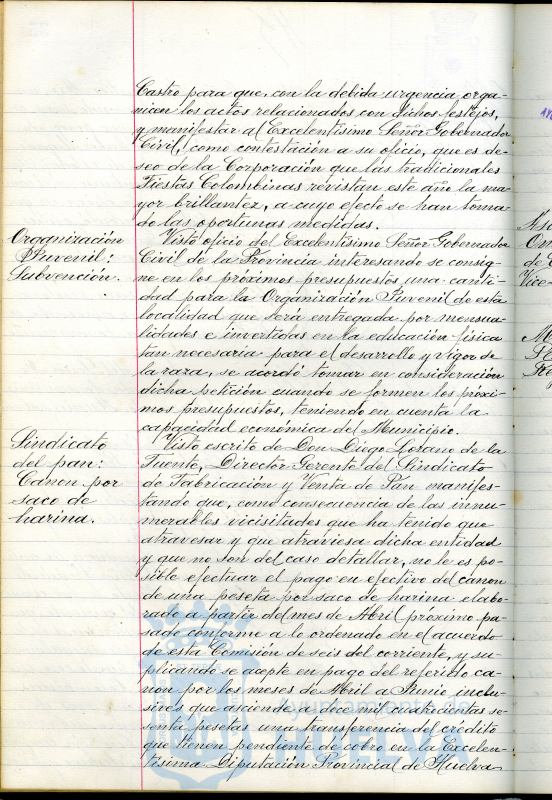 Castro para que, con la debida urgencia orga-
nicen los actos relacionados con dichos festejos,
y manifestar al Excelentísimo Señor Gobernador
Civil, como contestación a su oficio, que es de-
seo de la Corporación que las tradicionales
Fiestas Colombinas revistan este año la ma-
yor brillantez, a cuyo efecto se han toma-
do las oportunas medidas.
Organización
Juvenil:
Subvención.
Visto oficio del Excelentísimo Señor Gobernador
Civil de la Provincia interesando se consig-
ne en los próximos presupuestos una canti-
dad para la Organización Juvenil de esta
localidad que será entregada por mensua-
lidades e invertidas en la educación física
tan necesaria para el desarrollo y vigor de
la raza, se acordó tomar en consideración
dicha petición cuando se formen los próxi-
mos presupuestos, teniendo en cuenta la
capacidad económica del Municipio.
Sindicato
del pan:
Canon por
saco de
harina.
Visto escrito de Don Diego Lozano de la
Fuente, Director Gerente del Sindicato
de Fabricación y Venta de Pan manifes-
tando que, como consecuencia de las innu-
merables vicisitudes que ha tenido que
atravesar y que atraviesa dicha entidad
y que no son del caso detallar, no le es po-
sible efectuar el pago en efectivo del canon
de una peseta por saco de harina elabo-
rado a partir del mes de Abril próximo pa-
sado conforme a lo ordenado en el acuerdo
de esta Comisión de seis del corriente, y su-
plicando se acepte en pago del referido ca-
non por los meses de Abril a Junio inclu-
sives que asciende a doce mil cuatrocientas se-
senta pesetas una transferencia del crédito
que tienen pendiente de cobro en la Excelen-
tísima Diputación Provincial de Huelva
Ayuntamiento de
HUELVA